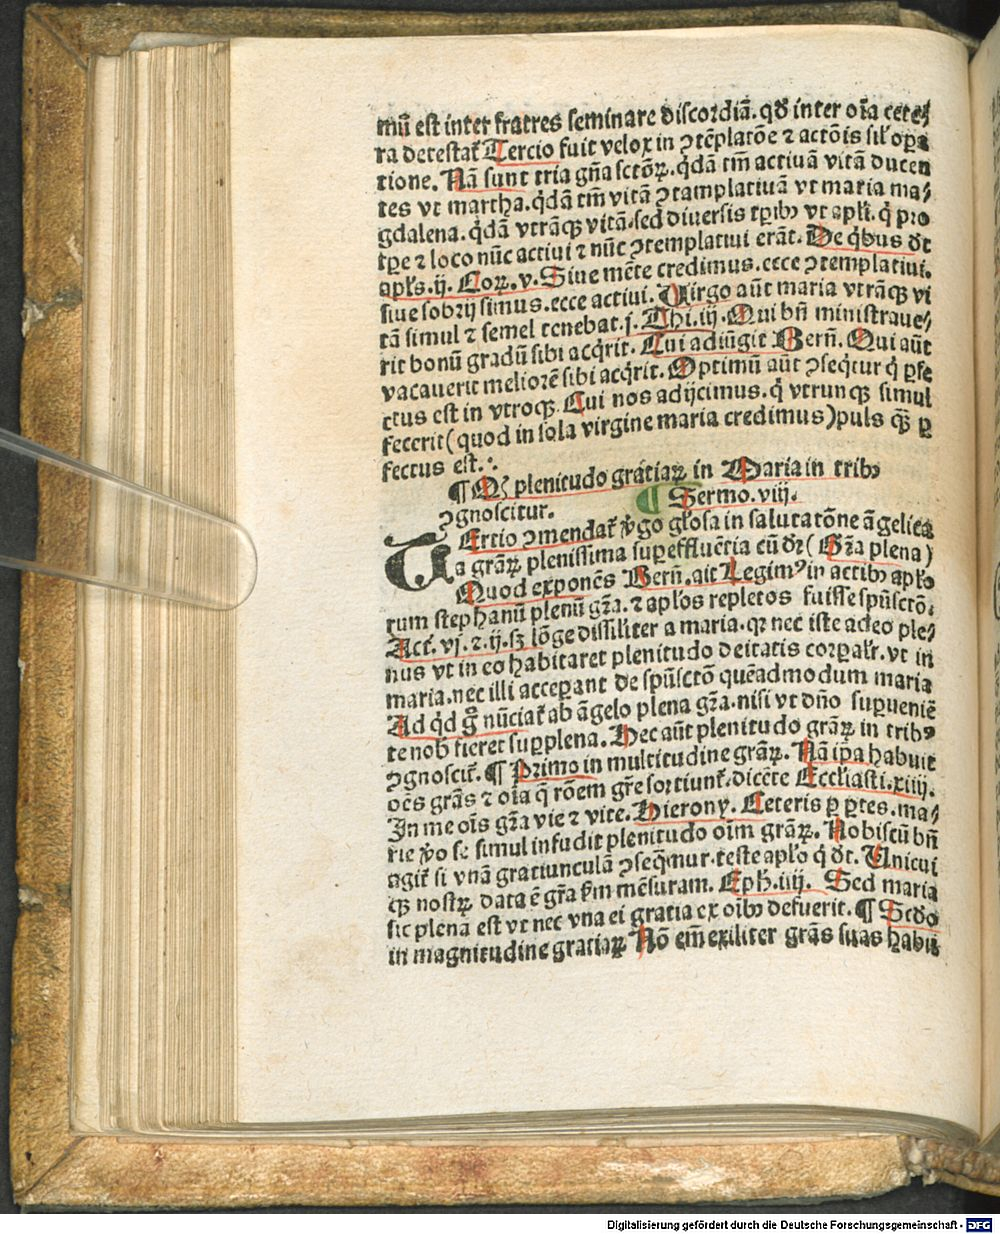 mū est inter fratres seminare discordiā. qď inter oīa cete⸗
ra detestaẗ Tercio fuit velox in ꝯtēplatōe ⁊ actōis siľ oꝑa
tione. Nā sunt tria gn̄a sctōꝝ. qͥdā tm̄ actiuā vitā ducen
tes vt martha. qͥdā tm̄ vitā ꝯtamplatiuā vt maria ma⸗
gdalena. qͥdā vtrāqꝫ vitā. sed diuersis tꝑibꝰ vt apľi. qͥ pro
tꝑe ⁊ loco nūc actiui ⁊ nūc ꝯtemplatiui erāt. De qͥbus dt
apľs. ij. Coꝝ. v. Siue mēte credimus. ecce ꝯtemplatiui.
siue sobrij simus. ecce actiui. Virgo aūt maria vtrāqꝫ vi
tā simul ⁊ semel tenebat. j. Thi. iij. Qui bn̄ ministraue⸗
rit bonū gradū sibi acqͥrit. Cui adiūgit Bern̄. Qui aūt
vacauerit meliorē sibi acqͥrit. Optimū aūt ꝯseqͥtur qͥ ꝑfe
ctus est in vtroqꝫ. Cui nos adijcimus. qͥ vtrunqꝫ simul
fecerit (quod in sola virgine maria credimus) puls qꝫ̄ ꝑ
fectus est.
¶ Qꝫ plenitudo gratiaꝝ in Maria in tribꝰ
ꝯgnoscitur. ¶ Sermo. viij.
TErcio ꝯmendaẗ v̓go gľosa in salutatōne āgelica
a grāꝝ plenissima suꝑeffluētia cū dr̄ (Gr̄a plena)
Quod exponēs Bern̄. ait Legimꝰ in actibꝰ apľo
rum stephanū plenū gr̄a. ⁊ apľos repletos fuisse spūsctō.
Act. vj. ⁊. ij. sꝫ lōge dissiliter a maria. qꝛ nec iste adeo ple⸗
nus vt in eo habitaret plenitudo deitatis corꝑaľr. vt in
maria. nec illi acceꝑant de spūsctō quēadmodum maria
Ad qͥd g̊ nūciaẗ ab āgelo plena gr̄a. nisi vt dn̄o suꝑueniē
te nob̓ fieret suꝑplena. Hec aūt plenitudo grāꝝ in tribꝰ
ꝯgnosciẗ. ¶ Primo in multitudine grāꝝ. Nā ip̄a habuit
oēs grās ⁊ oīa q̄ rōem gr̄e sortiunẗ. dicēte Eccľiasti. xiiij.
In me oīs gr̄a vie ⁊ vite. Hierony. Ceteris ꝑ ꝑtes. ma⸗
rie v̓o se simul infudit plenitudo oīm grāꝝ. Nobiscū bn̄
agiẗ si vnā gratiunculā ꝯseqͥmur. teste apľo qͥ dt. Vnicui
qꝫ nostꝝ data ē gr̄a ẜm mēsuram. Eph. iiij. Sed maria
sic plena est vt nec vna ei gratia ex oībꝰ defuerit. ¶ Scdo
in magnitudine gratiaꝝ Nō em̄ exiliter grās suas habu
Digitalisierung gefördert durch die Deutsche Forschungsgemeinschaft - DFG